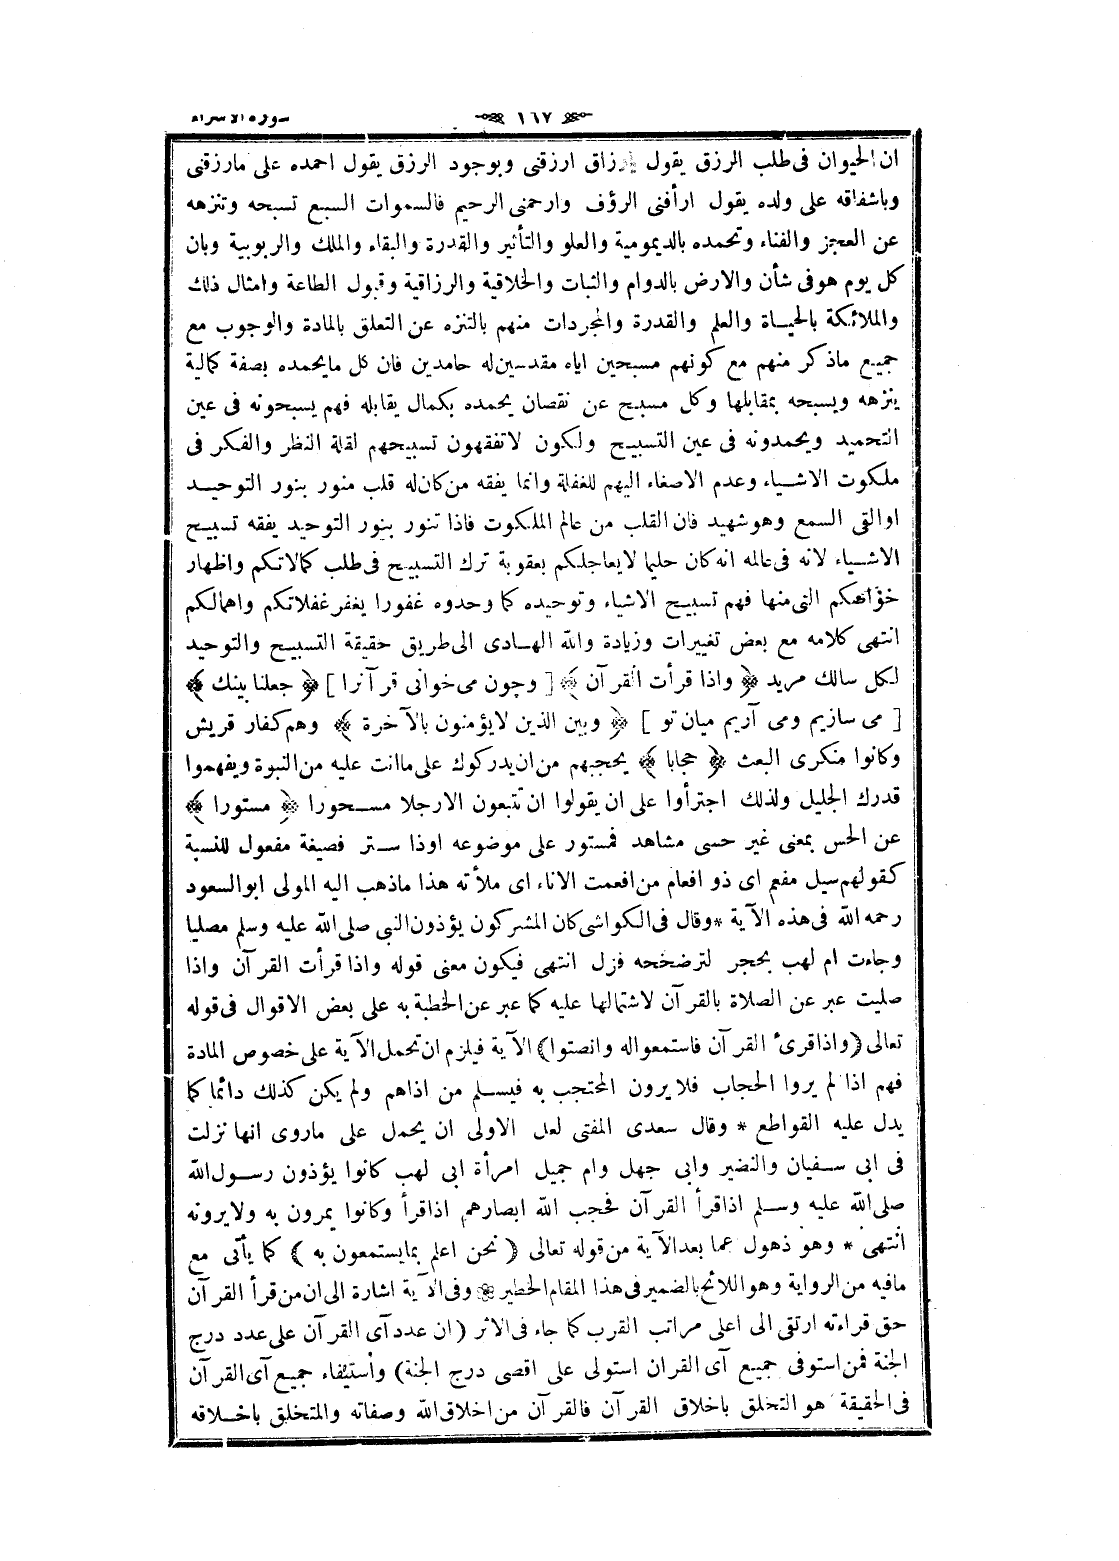 سورة الاسراء
﴿ ١٦٧ ﴾
ان الحيوان فى طلب الرزق يقول يارزاق ارزقنى وبوجود الرزق يقول احمده على مارزقنى
وباشفاقه على ولده يقول ارأفنى الرؤف وارحمنى الرحيم فالسموات السبع تسبحه وتنزهه
عن العجز والفناء وتحمده بالديمومية والعلو والتأثير والقدرة والبقاء والملك والربوبية وبان
كل يوم هو فى شأن والارض بالدوام والثبات والخلاقية والرزاقية وقبول الطاعة وامثال ذلك
والملائكة بالحياة والعلم والقدرة والمجردات منهم بالتنزه عن التعلق بالمادة والوجوب مع
جميع ماذكر منهم مع كونهم مسبحين اياه مقدسين له حامدين فان كل مايحمده بصفة كمالية
ينزهه ويسبحه بمقابلها وكل مسبح عن نقصان يحمده بكمال يقابله فهم يسبحونه فى عين
التحميد ويحمدونه فى عين التسبيح ولكون لاتفقهون تسبيحهم لقلة النظر والفكر فى
ملكوت الاشياء وعدم الاصغاء اليهم للغفلة وانما يفقه من كان له قلب منور بنور التوحيد
اوالقى السمع وهو شهيد فان القلب من عالم الملكوت فاذا تنور بنور التوحيد يفقه تسبيح
الاشياء لانه فى عالمه انه كان حليما لايعاجلكم بعقوبة ترك التسبيح فى طلب كمالاتكم واظهار
خواصكم التى منها فهم تسبيح الاشياء وتوحيده كما وحدوه غفورا يغفر غفلاتكم واهمالكم
انتهى كلامه مع بعض تغييرات وزيادة والله الهادى الى طريق حقيقة التسبيح والتوحيد
لكل سالك مريد ﴿ واذا قرأت القرآن ﴾ [ وچون مى خوانى قرآنرا ] ﴿ جعلنا بينك ﴾
[ مى سازيم ومى آريم ميان تو ] ﴿ وبين الذين لايؤمنون بالآخرة ﴾ وهم كفار قريش
وكانوا منكرى البعث ﴿ حجابا ﴾ يحجبهم من ان يدركوك على ماانت عليه من النبوة ويفهموا
قدرك الجليل ولذلك اجترأوا على ان يقولوا ان تتبعون الارجلا مسحورا ﴿ مستورا ﴾
عن الحس بمعنى غير حسى مشاهد فمستور على موضوعه اوذا ستر فصيغة مفعول للنسبة
كقولهم سيل مفعم اى ذو افعام من افعمت الاناء اى ملأته هذا ماذهب اليه المولى ابوالسعود
رحمه الله فى هذه الآية * وقال فى الكواشى كان المشركون يؤذون النبى صلى الله عليه وسلم مصليا
وجاءت ام لهب بحجر لترضخه فزل انتهى فيكون معنى قوله واذا قرأت القرآن واذا
صليت عبر عن الصلاة بالقرآن لاشتمالها عليه كما عبر عن الخطبة به على بعض الاقوال فى قوله
تعالى ﴿ واذاقرئ القرآن فاستمعواله وانصتوا ﴾ الآية فيلزم ان تحمل الآية على خصوص المادة
فهم اذا لم يروا الحجاب فلا يرون المحتجب به فيسلم من اذاهم ولم يكن كذلك دائما كما
يدل عليه القواطع * وقال سعدى المفتى لعل الاولى ان يحمل على ماروى انها نزلت
فى ابى سفيان والنضير وابى جهل وام جميل امرأة ابى لهب كانوا يؤذون رسول الله
صلى الله عليه وسلم اذاقرأ القرآن فحجب الله ابصارهم اذاقرأ وكانوا يمرون به ولايرونه
انتهى * وهو ذهول عما بعدالآية من قوله تعالى ﴿ نحن اعلم بمايستمعون به ﴾ كما يأتى مع
مافيه من الرواية وهو اللائح بالضمير فى هذا المقام الخطير وفى الآية اشارة الى ان من قرأ القرآن
حق قراءته ارتقى الى اعلى مراتب القرب كما جاء فى الاثر ( ان عدد آى القرآن على عدد درج
الجنة فمن استوفى جميع آى القران استولى على اقصى درج الجنة) وأستيفاء جميع آى القرآن
فى الحقيقة هو التخلق باخلاق القرآن فالقرآن من اخلاق الله وصفاته والمتخلق باخلاقه